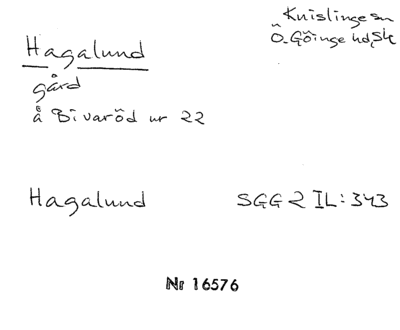 Knislinge sn
Hagalund
Ö. Göinge hd, Sk
gård
å Bivaröd nr 22
Hagalund SGG 2 IL:343
Nr 16576